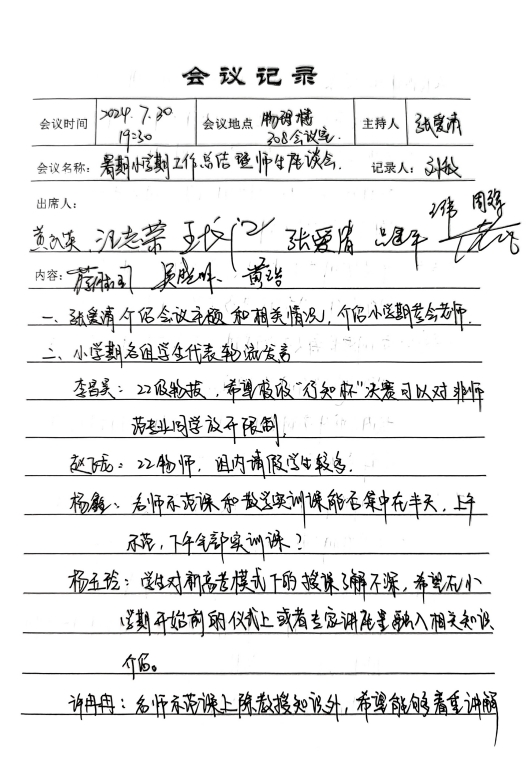 会议记录
会议时间 2024.7.30 19:30 会议地点 物理楼308会议室 主持人 张爱清
会议名称: 暑期小学期工作总结暨师生座谈会 记录人: 刘敏
出席人:
王伟 周强
汪志荣 张爱清
内容: 黄浩
一、张爱清介绍会议主题和相关情况，介绍小学期莅会老师.
二、小学期各组学生代表轮流发言
李昌昊: 22级物技，希望校级“行知杯”决赛可以对非师
范专业同学放开限制.
赵飞龙: 22物师，组内请假学生较多.
杨鑫: 名师示范课和教学实训课能否集中在半天，上午
示范，下午全部实训课？
杨玉玲: 学生对新高考模式下的授课了解不深，希望在小
学期开始前的仪式上或者专家讲座里融入相关知识
介绍。
许冉冉: 名师示范课上除教授知识外，希望能够着重讲解